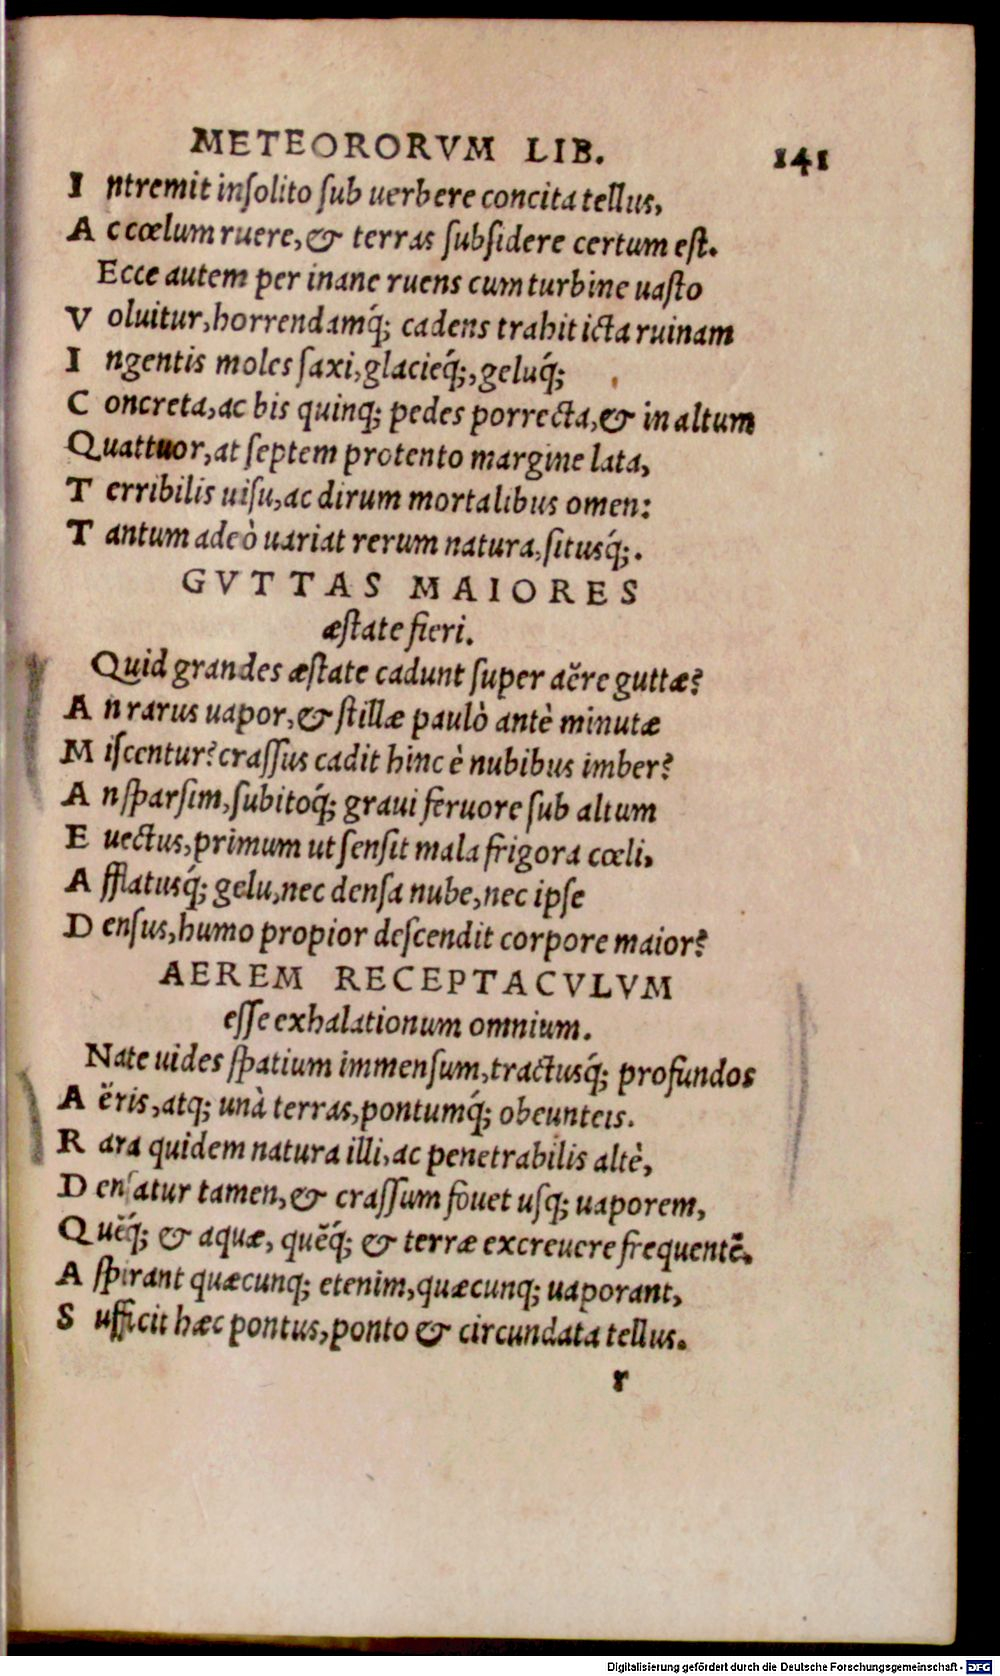 METEORORVM LIB. 141
I ntremit insolito sub uerbere concita tellus,
A c cœlum ruere, & terras subsidere certum est.
Ecce autem per inane ruens cum turbine uasto
V oluitur, horrendamq́; cadens trahit icta ruinam
I ngentis moles saxi, glacieq́;, geluq́;
C oncreta, ac bis quinq; pedes porrecta, & in altum
Quattuor, at septem protento margine lata,
T erribilis uisu, ac dirum mortalibus omen:
T antum adeò uariat rerum natura, situsq́;.
GVTTAS MAIORES
æstate fieri.
Quid grandes æstate cadunt super aëre guttæ?
A n rarus uapor, & stillæ paulò antè minutæ
M iscentur? crassus cadit hinc è nubibus imber?
A n sparsim, subitoq́; graui feruore sub altum
E uectus, primum ut sensit mala frigora cœli,
A fflatusq́; gelu, nec densa nube, nec ipse
D ensus, humo propior descendit corpore maior?
AEREM RECEPTACVLVM
esse exhalationum omnium.
Nate uides spatium immensum, tractusq́; profundos
A ëris, atq; unà terras, pontumq́; obeunteis.
R ara quidem natura illi, ac penetrabilis altè,
D ensatur tamen, & crassum fouet usq; uaporem,
Q uẽq́; & aquæ, quẽq́; & terræ excreuere frequentẽ.
A spirant quæcunq; etenim, quæcunq; uaporant,
S ufficit hæc pontus, ponto & circundata tellus.
r
Digitalisierung gefördert durch die Deutsche Forschungsgemeinschaft - DFG